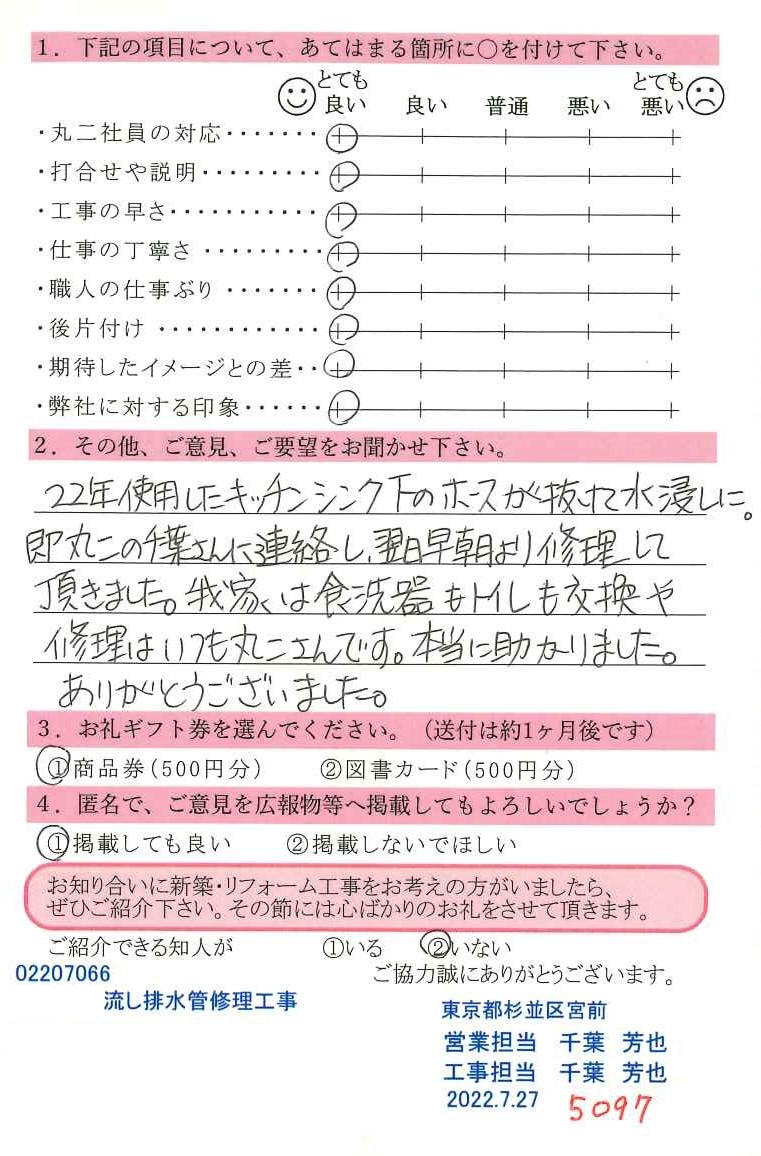 1. 下記の項目について、あてはまる箇所に○を付けて下さい。
とても良い 良い 普通 悪い とても悪い
・丸二社員の対応・・・・・・・
・打合せや説明・・・・・・・・・
・工事の早さ・・・・・・・・・・・
・仕事の丁寧さ・・・・・・・・・
・職人の仕事ぶり・・・・・・・
・後片付け・・・・・・・・・・・・
・期待したイメージとの差・・
・弊社に対する印象・・・・・・
2. その他、ご意見、ご要望をお聞かせ下さい。
22年使用したキッチンシンク下のホースが抜けて水浸しに。
即丸二の千葉さんに連絡し、翌日早朝より修理して
頂きました。我家は食洗器もトイレも交換や
修理はいつも丸二さんです。本当に助かりました。
ありがとうございました。
3. お礼ギフト券を選んでください。（送付は約1ヶ月後です）
①商品券(500円分) ②図書カード(500円分)
4. 匿名で、ご意見を広報物等へ掲載してもよろしいでしょうか？
①掲載しても良い ②掲載しないでほしい
お知り合いに新築・リフォーム工事をお考えの方がいましたら、
ぜひご紹介下さい。その節には心ばかりのお礼をさせて頂きます。
ご紹介できる知人が ①いる ②いない
02207066 ご協力誠にありがとうございます。
流し排水管修理工事
東京都杉並区宮前
営業担当 千葉 芳也
工事担当 千葉 芳也
2022.7.27 5097